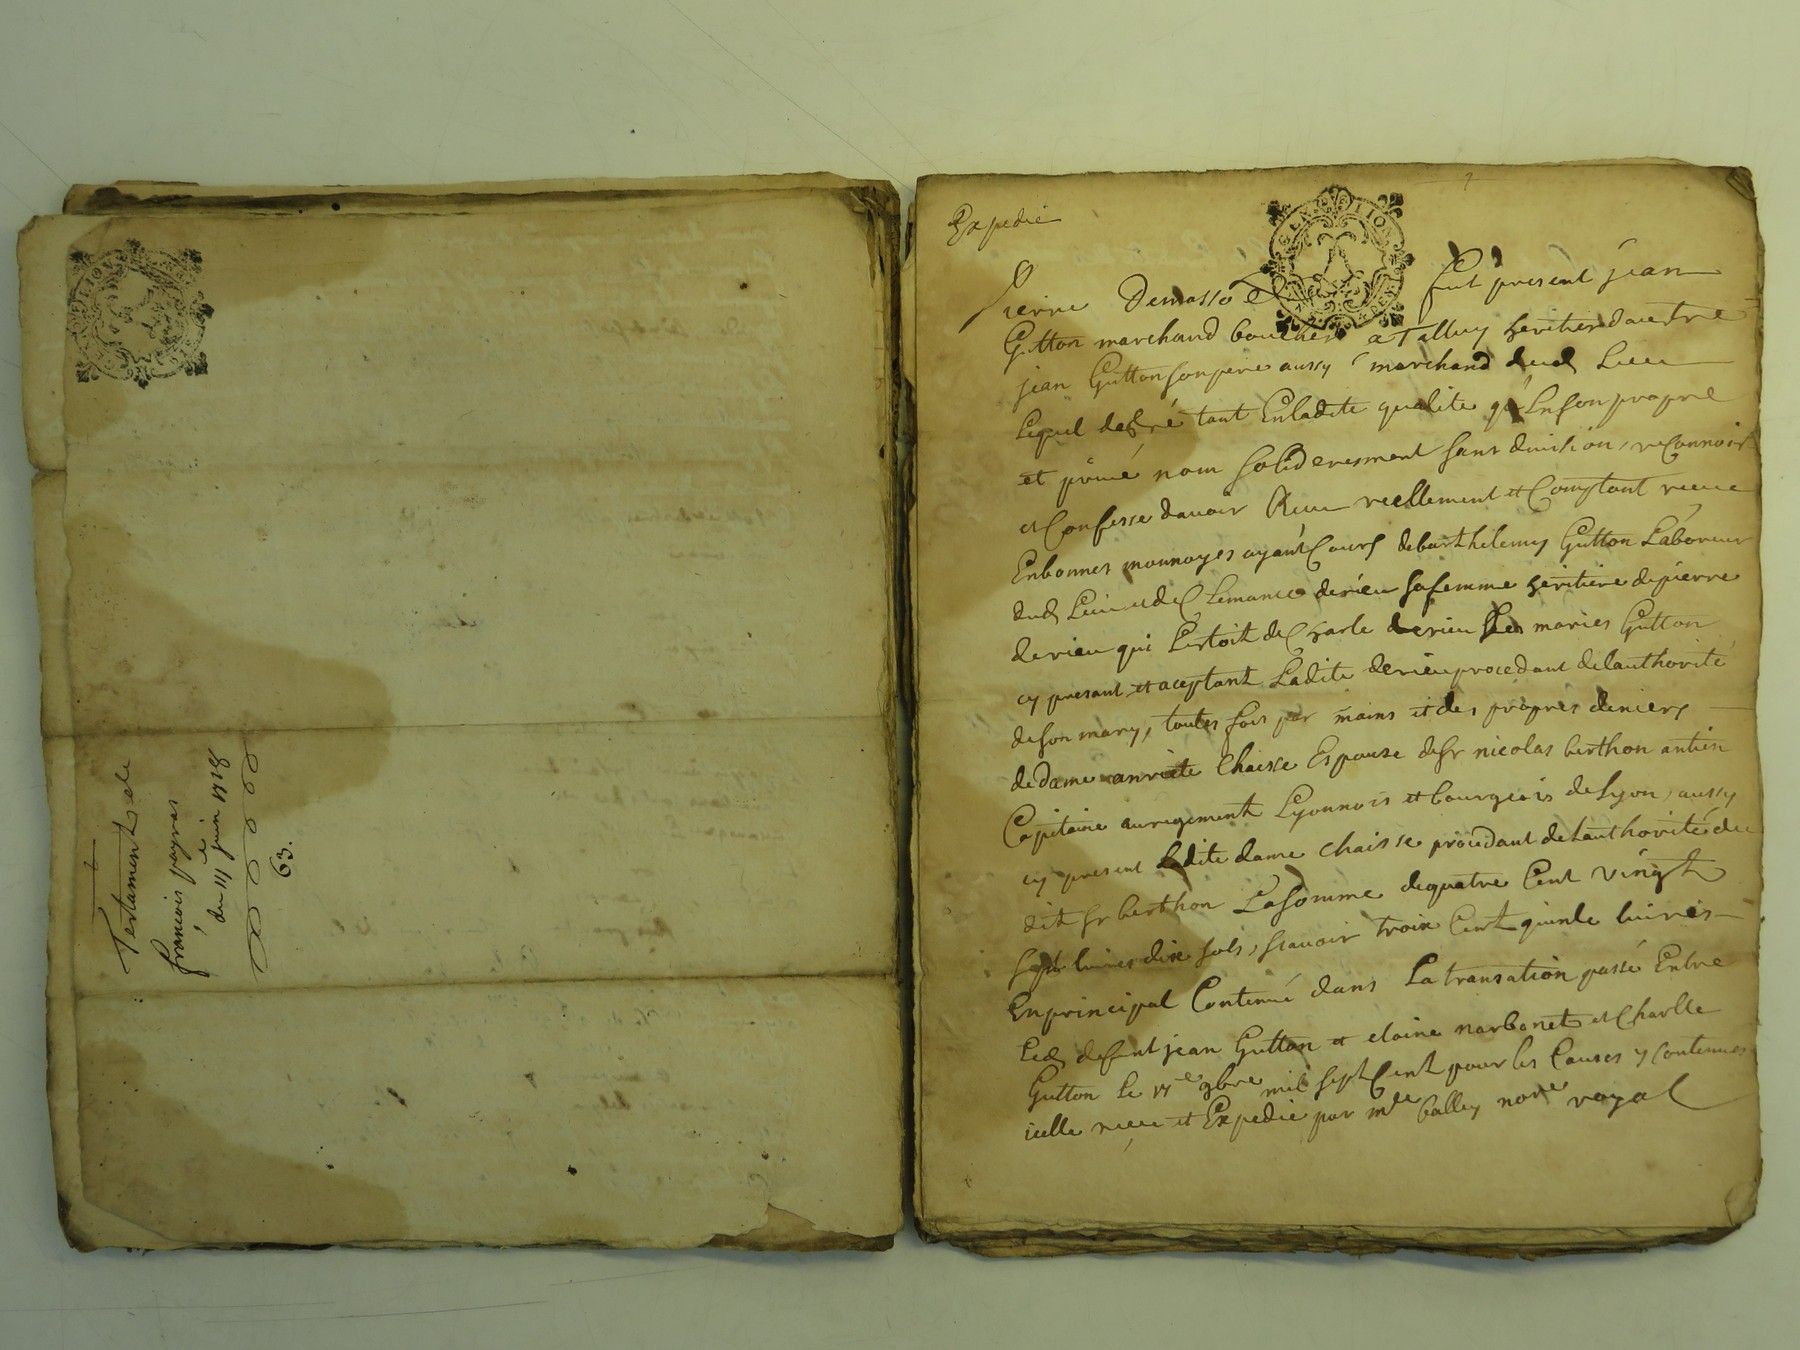 Testament de
francois payras
du iij e juin 1718
63.
Expedié
Pierre Demasso &
fut present jean
Gutton marchand boucher a Talluy heritier dautre
jean Gutton son pere aussy marchand dud Lieu
Lequel de gré tant En ladite qualite qu'En son propre
et privé nom solideresment sans division, reConnoit
et Confesse davoir Receu reellement et Comptant receu
En bonnes monnoyes ayant Cours de barthelemy Gutton Laboureur
dud Lieu et de Clemance derieu sa femme heritiere de pierre
derieu qui L'estoit de Charle derieu Les maries Gutton
cy presant et aceptant Ladite derieu procedant de lauthorité
de son mary, toutes fois par mains et des propres deniers
de dame anriete Chaisse Espouse de sr nicolas berthon antien
Capitaine au regiment Lyonnois et bourgeois de Lyon, aussy
cy present Ladite dame Chaisse procedant de Lauthorité du
dit sr berthon La somme de quatre Cent vingt
sept livres dix sols, scavoir trois Cent quinze livres
En principal Contenue dans La transation passé Entre
Led defunt jean Gutton et claine narbonet et Charlle
Gutton le 17e 9bre mil sept Cent pour les Causes y Contenues
icelle receu et Expedié par me balley nore royal